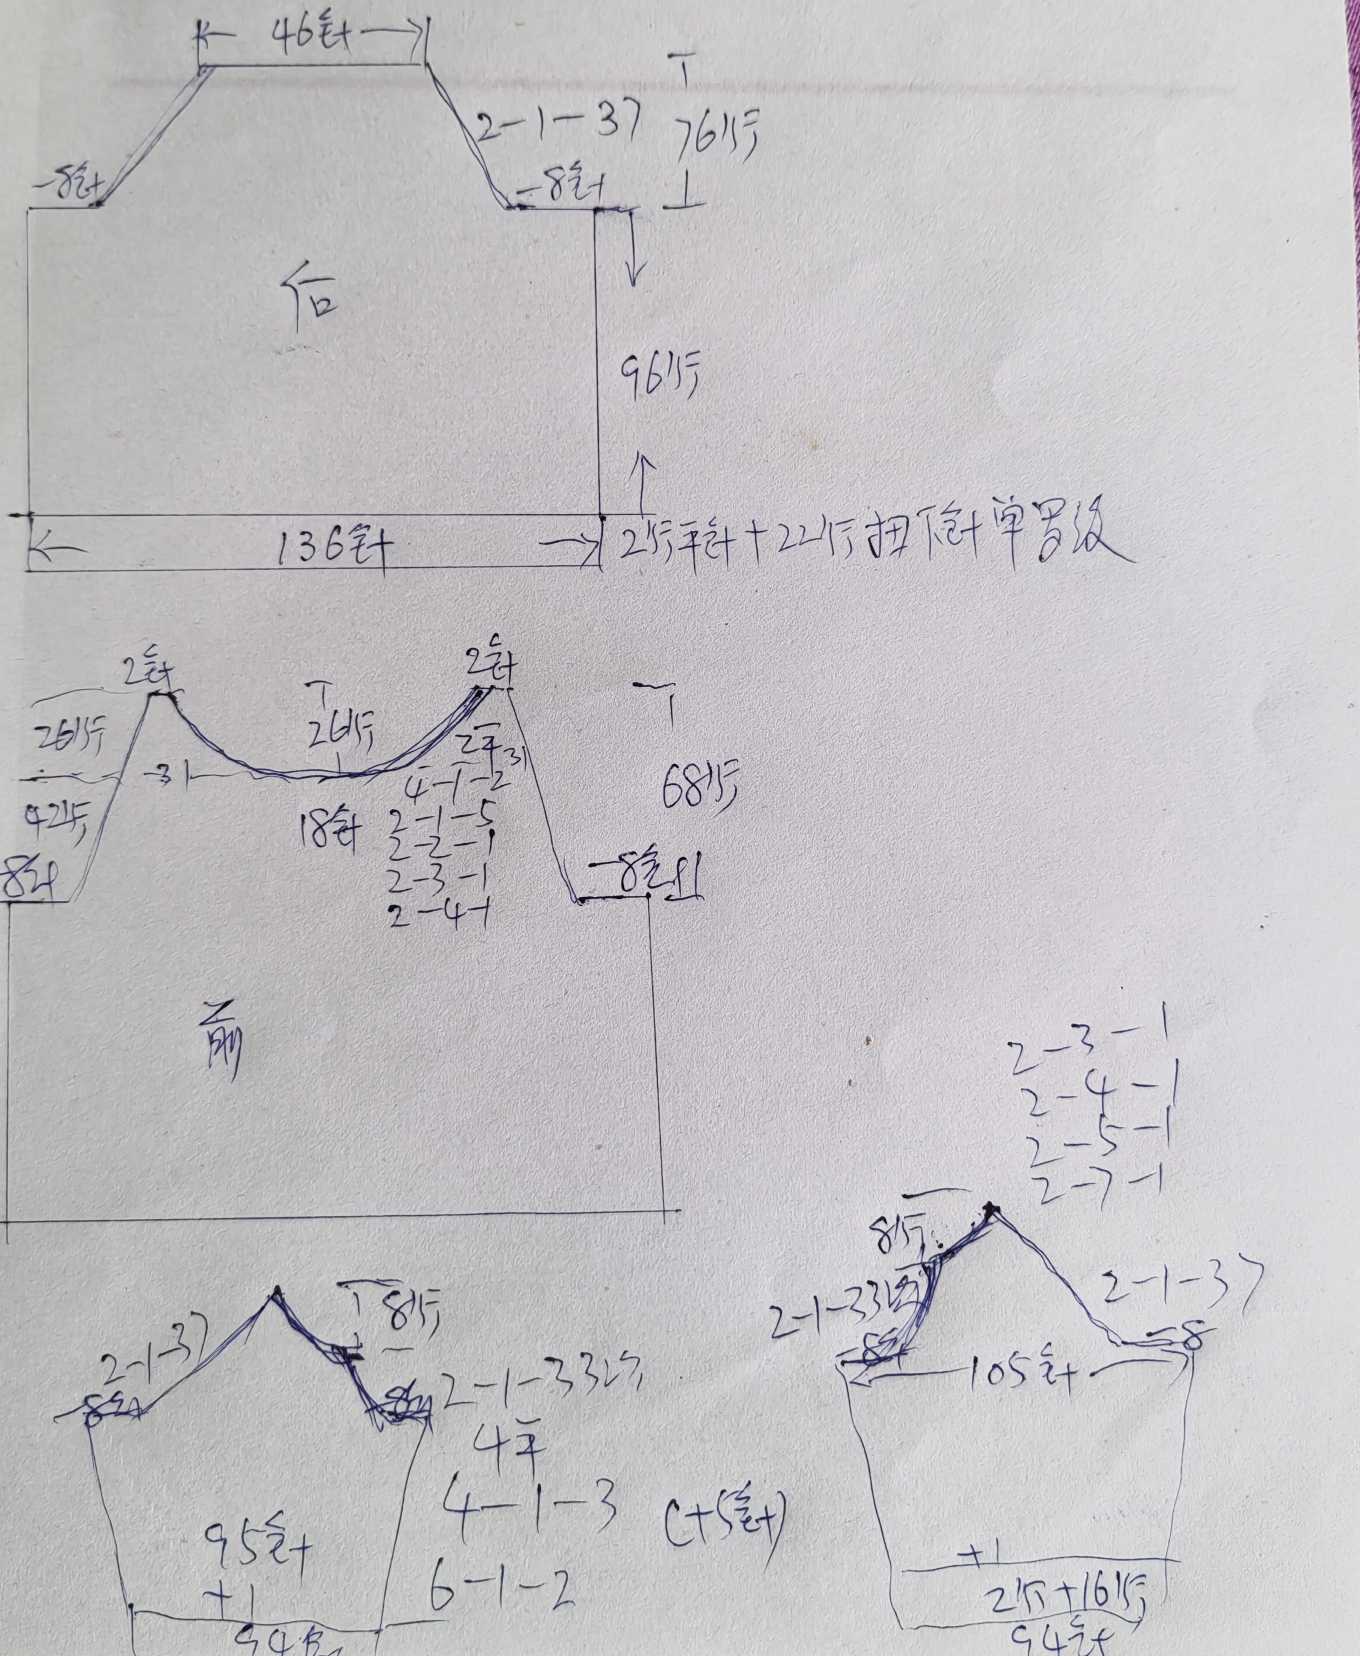 46针
2-1-37
76行
-8针
-8针
后
96行
136针
2行平针+22行扭下针单罗纹
2针
2针
26行
26行
2平
31
-31
4-1-2
42行
68行
18针
2-1-5
2-2-1
2-3-1
2-4-1
8针
-8针
前
2-3-1
2-4-1
2-5-1
2-7-1
8行
2-1-37
2-1-33
-8针
-8
105针
+1
2行+16行
94针
8行
2-1-37
-8针
-8针
2-1-33行
4平
4-1-3
(+5针)
6-1-2
95针
+1
94针